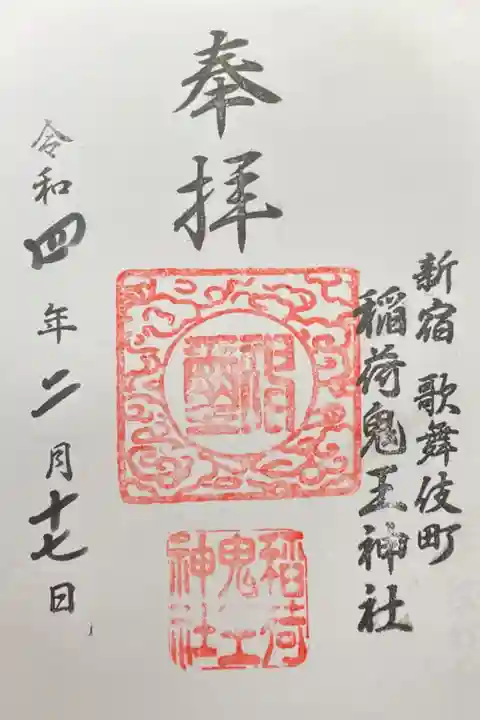 奉拝
新宿 歌舞伎町
稲荷鬼王神社
神璽
稲荷
鬼王
神社
令和四年二月十七日